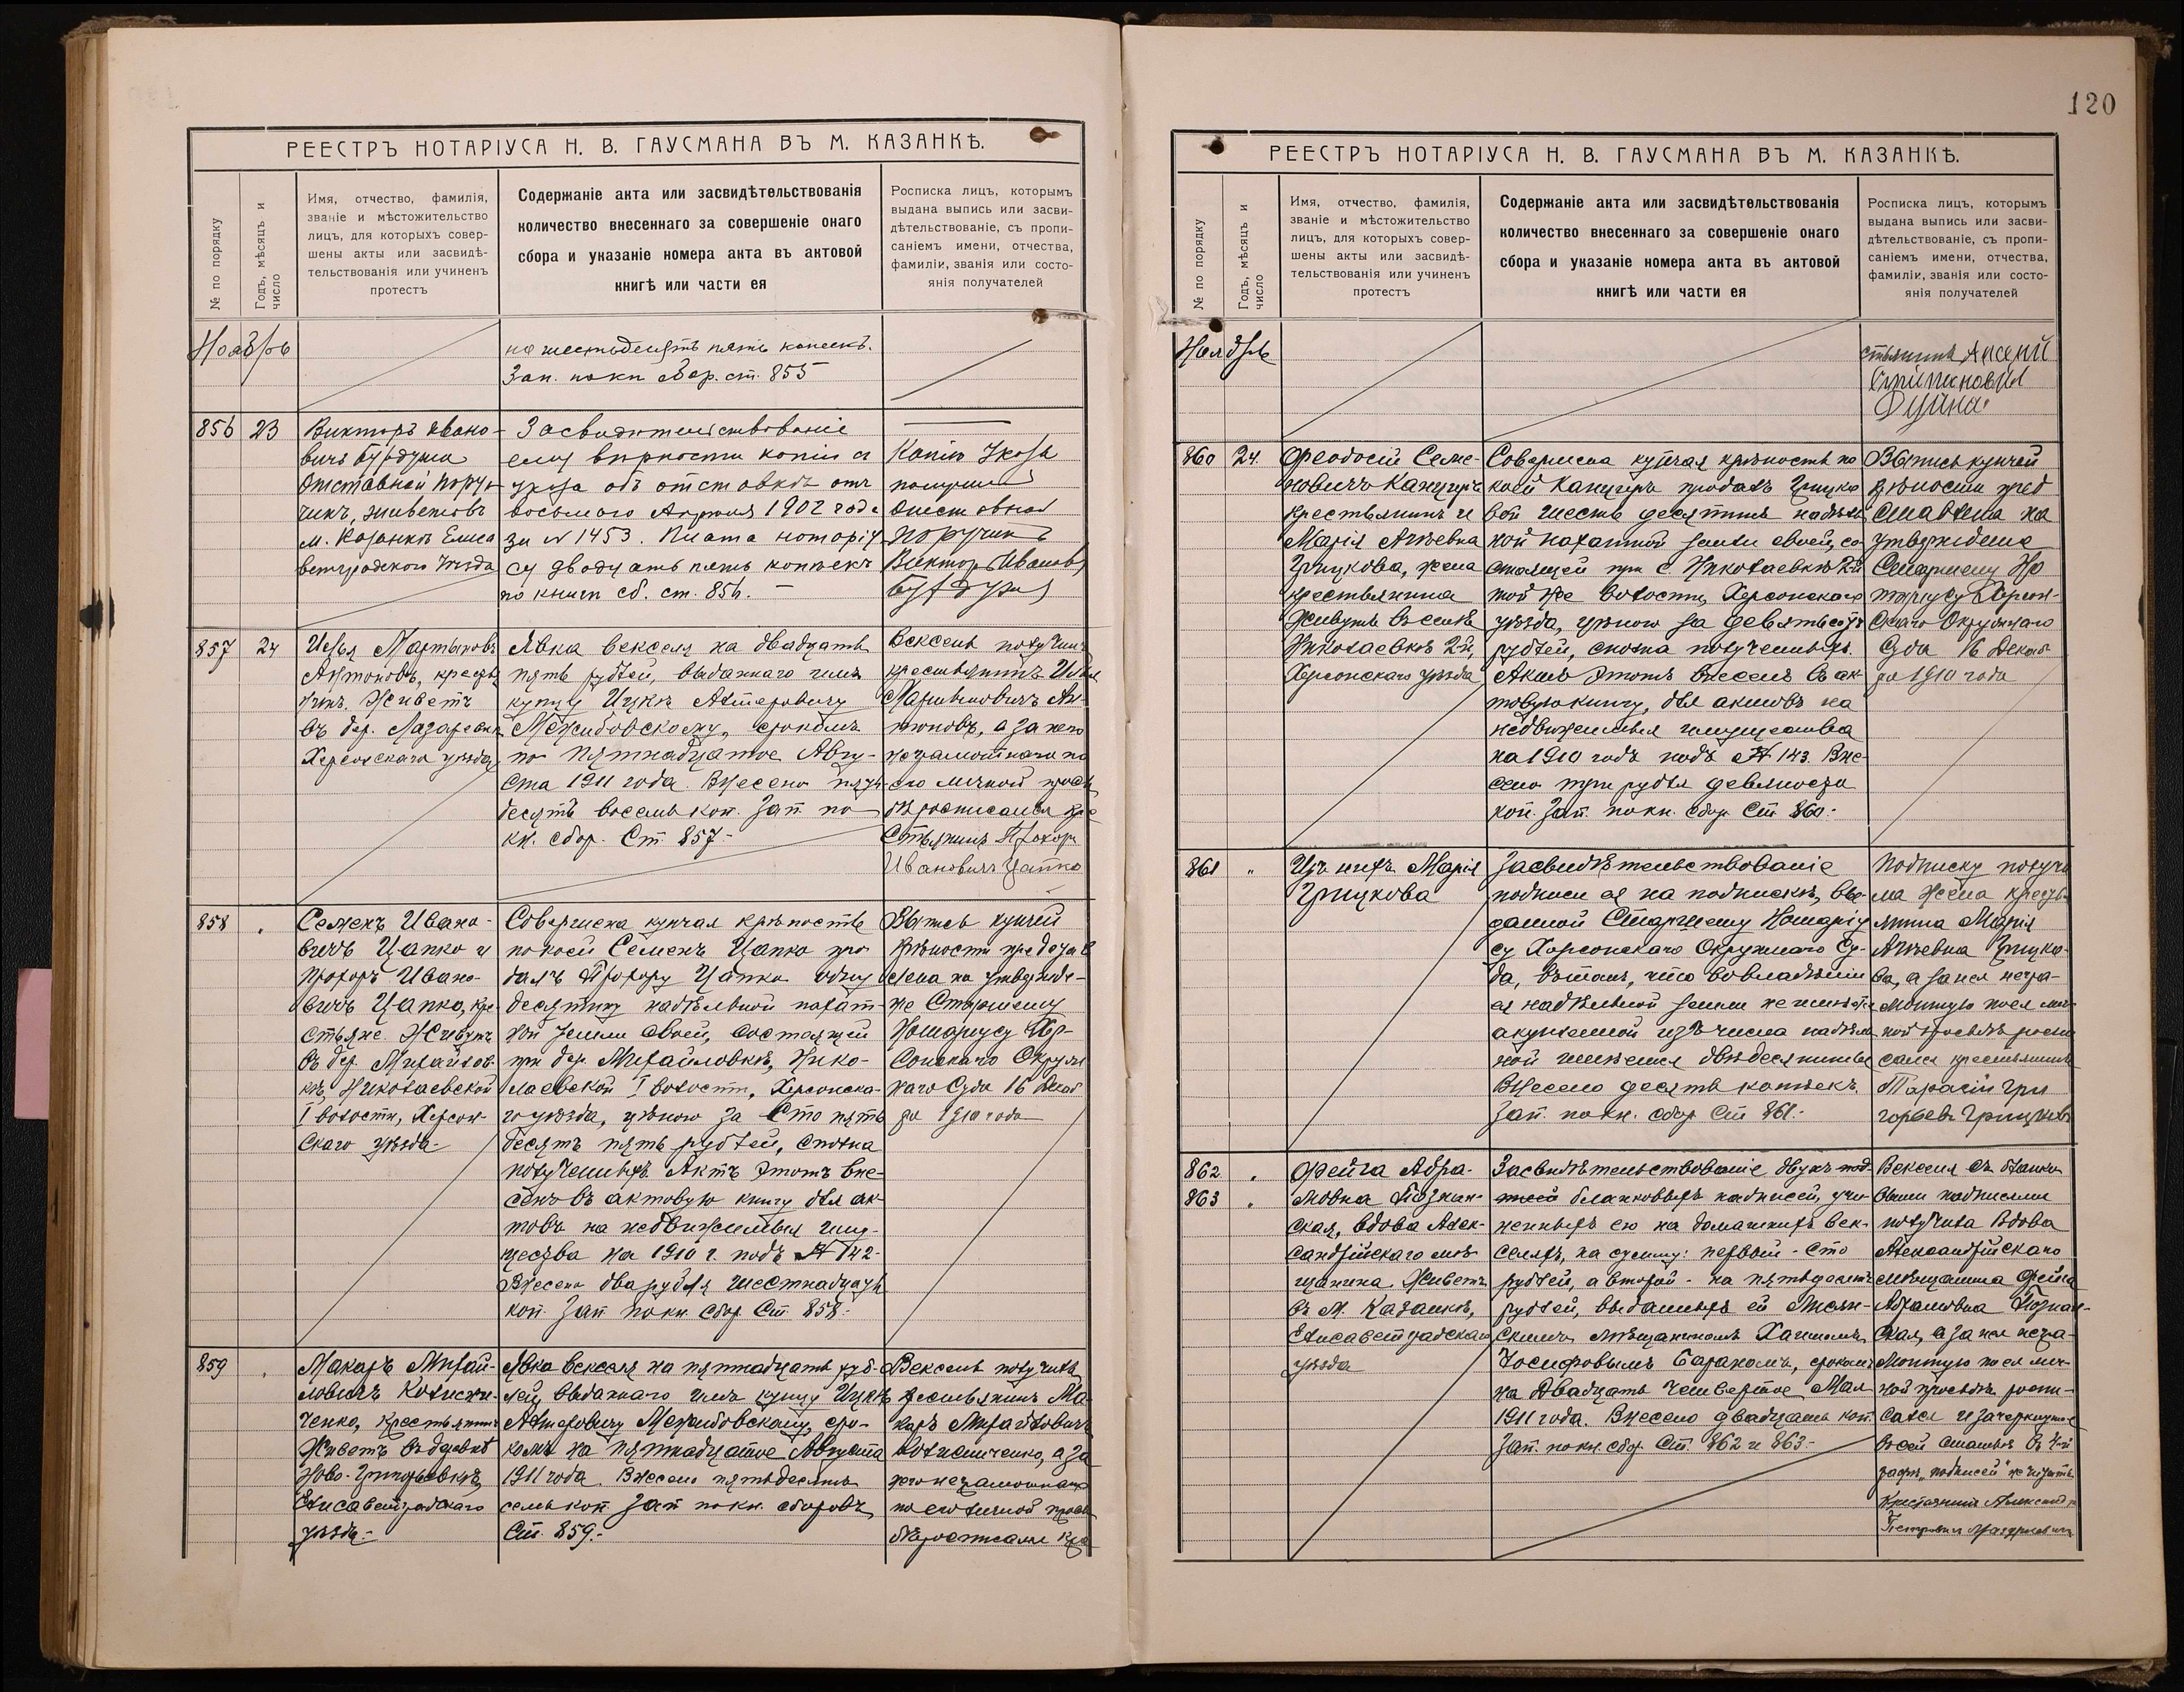 РЕЕСТРЪ НОТАРІУСА Н. В. ГАУСМАНА ВЪ М. КАЗАНКѢ.
№ по порядку
Годъ, мѣсяцъ и
число
Имя, отчество, фамилія,
званіе и мѣстожительство
лицъ, для которыхъ совер-
шены акты или засвидѣ-
тельствованія или учиненъ
протестъ
Содержаніе акта или засвидѣтельствованія
количество внесеннаго за совершеніе онаго
сбора и указаніе номера акта въ актовой
книгѣ или части ея
Росписка лицъ, которымъ
выдана выпись или засви-
дѣтельствованіе, съ пропи-
саніемъ имени, отчества,
фамиліи, званія или состо-
янія получателей
Ноябрь
на шестьдесятъ пять копеекъ.
Зап. по кн сбор. ст. 855
856
23
Викторъ Ивано-
вичъ
отставной пору-
чикъ, живетъ въ
м. Казанкѣ Елиса
ветградского уѣзда
Засвидетельствованіе
ему вѣрности копіи съ
указа объ отставкѣ отъ
восьмого Апреля 1902 года
за № 1453. Плата нотаріу
су двадцать пять копѣекъ
по книгѣ сб. ст. 856. —
Копію Указа
получилъ
отставной
поручикъ
Викторъ Ивановъ
857
24
Илья Мартыновъ
Антоновъ, кресть
янинъ. Живетъ
въ дер. Лазаревкѣ
Херсонскаго уѣзда
Явка векселя на двадцать
пять рублей, выданнаго имъ
купцу Ицкѣ
Межибовскому, срокомъ
по пятнадцатое Авгу-
ста 1911 года. Внесено пять
десятъ восемь коп. Зап. по
кн. сбор. Ст. 857.-
Вексель получилъ
крестьянинъ Илья
Мартыновичъ Ан-
тоновъ, а за него
неграмотнаго по
его личной прось
бѣ росписался кре
стьянинъ Прохоръ
Ивановичъ Цапко
858
"
Семенъ Ивано-
вичъ Цапко и
Прохоръ Ивано-
вичъ Цапко, кре-
стьяне. Живутъ
въ дер. Михайлов-
кѣ, Николаевской
I волости, Херсон-
скаго уѣзда.-
Совершена купчая крѣпость
по коей Семенъ Цапко про
далъ Прохору Цапко одну
десятину надѣльной пахат-
ной земли своей, состоящей
при дер. Михайловкѣ, Нико-
лаевской I волости, Херсонска-
го уѣзда, цѣною за сто пять
десятъ пять рублей, сполна
полученныхъ. Актъ этотъ вне-
сенъ въ актовую книгу для ак-
товъ на недвижимыя иму-
щества на 1910 г. подъ № 142.-
Внесено два рубля шестнадцать
коп. Зап. по кн. сбор. Ст. 858.-
Выпись купчей
крѣпости представ
лена на утвержде-
ніе Старшему
Нотаріусу Хер-
сонскаго Окруж
наго Суда 16 Декаб
ря 1910 года
859
"
Макаръ Михай-
ловичъ Колисни-
ченко, крестьянинъ
Живетъ въ деревнѣ
Ново-Григорьевкѣ,
Елисаветградскаго
уѣзда.-
Явка векселя на пятнадцать руб-
лей, выданнаго имъ купцу Ицкѣ
Межибовскому, сро-
комъ на пятнадцатое Августа
1911 года. Внесено пятьдесятъ
семь коп. Зап. по кн. сборовъ
Ст. 859.-
Вексель получилъ
крестьянинъ Ма-
каръ Михайловичъ
Колисниченко, а за
него неграмотнаго
по его личной прось
бѣ росписался кре
120
РЕЕСТРЪ НОТАРІУСА Н. В. ГАУСМАНА ВЪ М. КАЗАНКѢ.
№ по порядку
Годъ, мѣсяцъ и
число
Имя, отчество, фамилія,
званіе и мѣстожительство
лицъ, для которыхъ совер-
шены акты или засвидѣ-
тельствованія или учиненъ
протестъ
Содержаніе акта или засвидѣтельствованія
количество внесеннаго за совершеніе онаго
сбора и указаніе номера акта въ актовой
книгѣ или части ея
Росписка лицъ, которымъ
выдана выпись или засви-
дѣтельствованіе, съ пропи-
саніемъ имени, отчества,
фамиліи, званія или состо-
янія получателей
Ноябрь
стьянинъ
860
24.
Феодосій Семе-
новичъ Канцуръ
крестьянинъ и
Марія Агѣевна
Грицкова, жена
крестьянина
Живутъ въ селѣ
Николаевкѣ 2-й,
Херсонскаго уѣзда
Совершена купчая крѣпость по
коей Канцуръ продалъ Грицко
вой шесть десятинъ надѣль
ной пахатной земли своей, со
стоящей при с. Николаевкѣ 2-й
той же волости, Херсонскаго
уѣзда, цѣною за девятьсотъ
рублей, сполна полученныхъ.
Актъ этотъ внесенъ въ ак-
товую книгу, для актовъ на
недвижимыя имущества
на 1910 годъ подъ № 143. Вне-
сено три рубля девяносто
коп. Зап. по кн. сбор. Ст. 860.-
Выпись купчей
крѣпости пред
ставлена на
утвержденіе
Старшему Но
таріусу Херсон-
скаго Окружнаго
Суда 16 Декаб
ря 1910 года
861
"
Изъ нихъ Марія
Грицкова
Засвидѣтельствованіе
подписи ея на подпискѣ, вы-
данной Старшему Нотаріу
су Херсонскаго Окружнаго Су-
да, въ томъ, что во владѣніи
ея надѣльной земли не имѣется
а купленной изъ числа надѣль
ной имѣется двѣ десятины
Внесено десять копѣекъ.
Зап. по кн. сбор. Ст. 861.-
Подписку получи
ла жена кресть-
янина Марія
Агѣевна Грицко-
ва, а за нея негра-
мотную по ея лич-
ной просьбѣ роспи
сался крестьянинъ
Тарасій Гри
горьевъ Грицковъ
862
863
"
"
Фейга Абра-
мовна Познан-
ская, вдова Алек-
сандрійскаго мѣ-
щанина. Живетъ
въ м. Казанкѣ,
Елисаветградскаго
уѣзда
Засвидѣтельствованіе двухъ под-
писей бланковыхъ надписей, учи-
ненныхъ ею на домашнихъ век-
селяхъ, на сумму: первый - сто
рублей, а второй - на пятьдесятъ
рублей, выданныхъ ей
скимъ мѣщаниномъ Хаимомъ
Іосифовымъ Бараномъ, срокомъ
на двадцать четвертое Мая
1911 года. Внесено двадцать коп.
Зап. по кн. сбор. Ст. 862 и 863.-
Векселя съ бланко
выми надписями
получила вдова
Александрійскаго
мѣщанина Фейга
Абрамовна Познан-
ская, а за нея негра-
мотную по ея лич-
ной просьбѣ роспи-
сался и зачеркнутое
въ сей статьѣ въ 4-й
графѣ „подписей" не читать
Крестьянинъ Александръ
Петровичъ